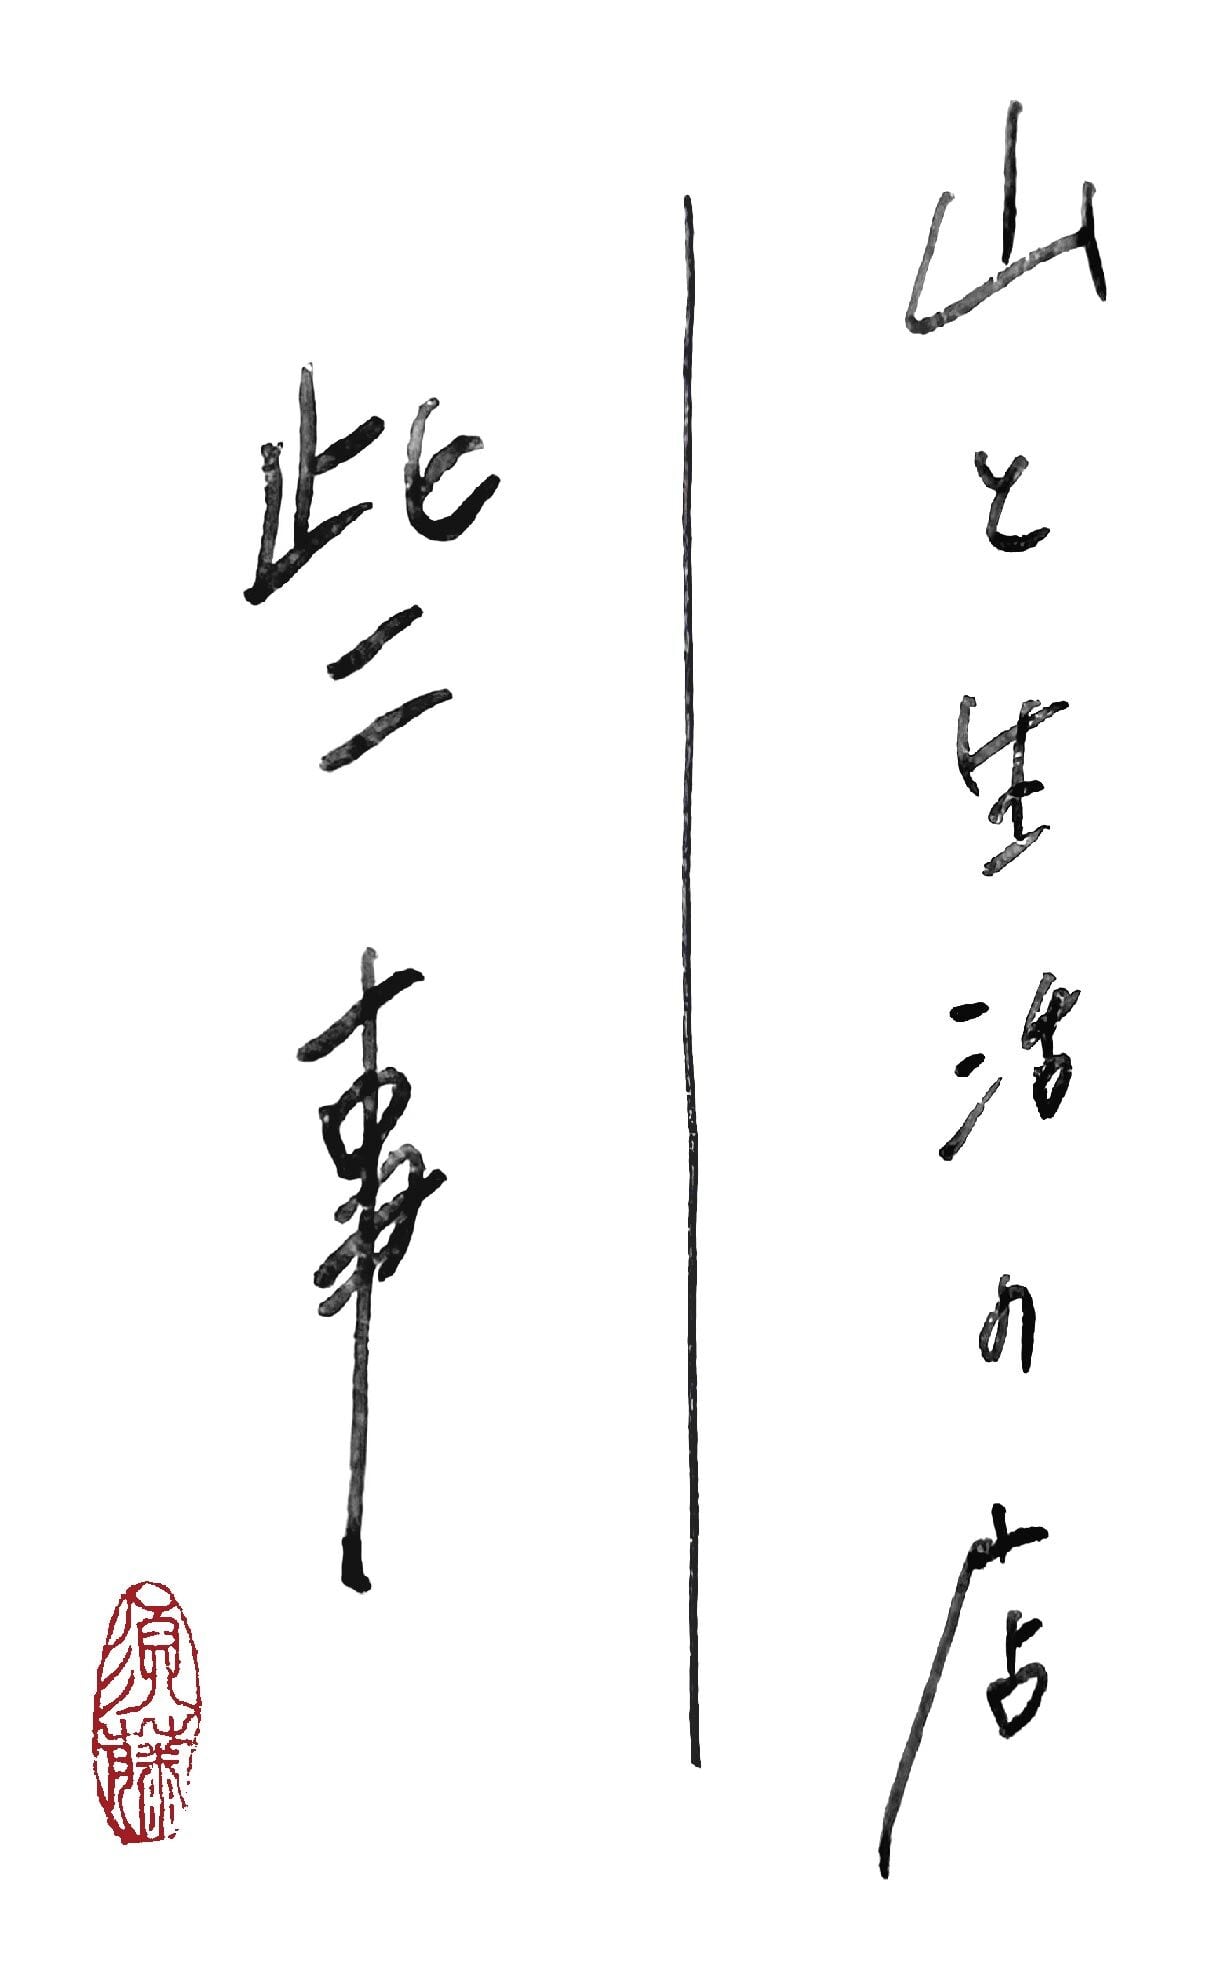 山と生活の店
些事
須藤